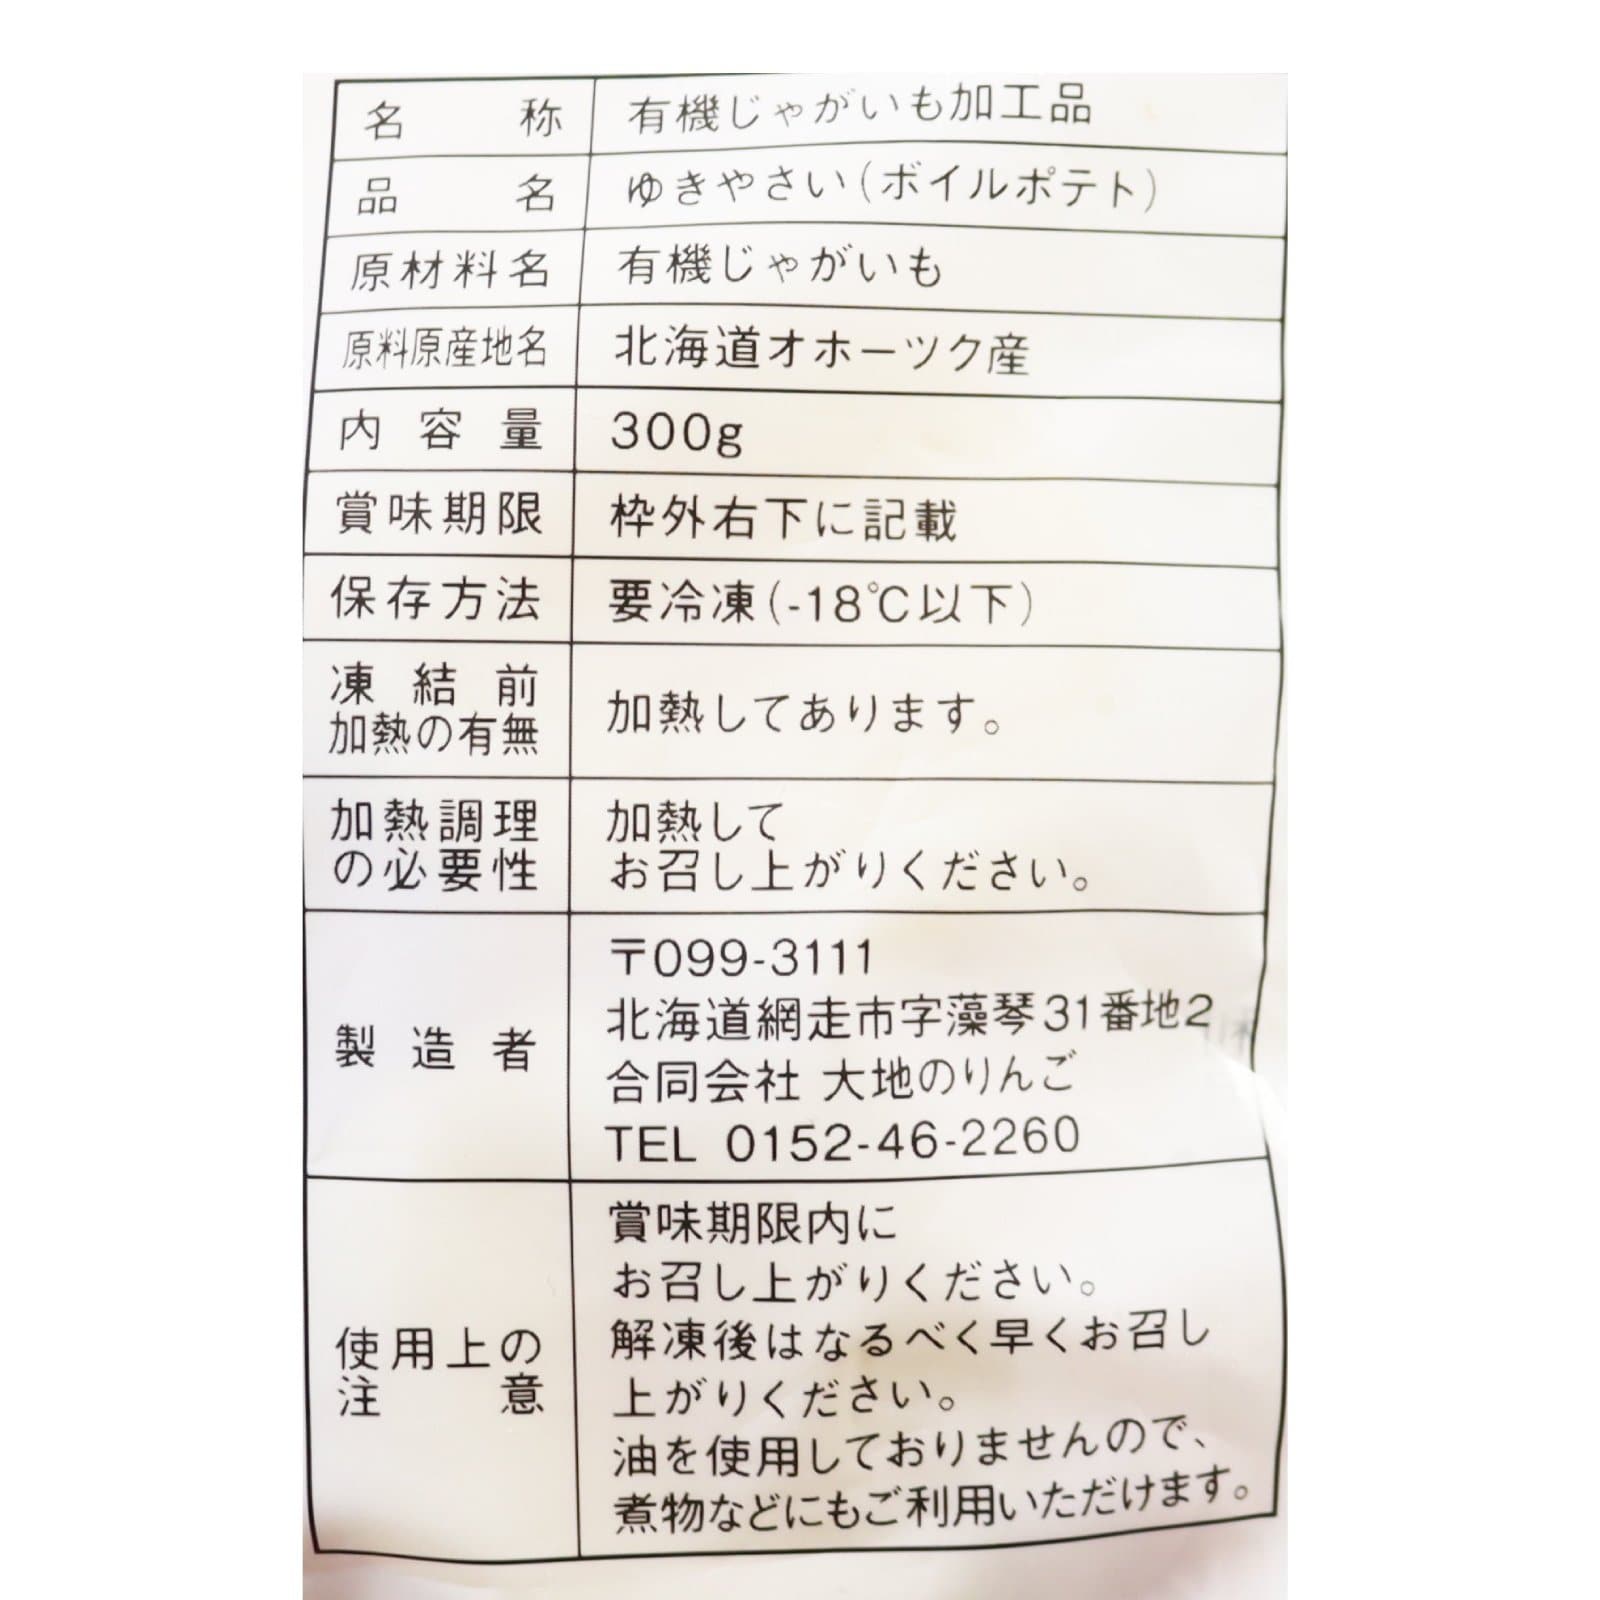 名称 有機じゃがいも加工品
品名 ゆきやさい(ボイルポテト)
原材料名 有機じゃがいも
原料原産地名 北海道オホーツク産
内容量 300g
賞味期限 枠外右下に記載
保存方法 要冷凍(-18℃以下)
凍結前
加熱の有無
加熱してあります。
加熱調理
の必要性
加熱して
お召し上がりください。
製造者
〒099-3111
北海道網走市字藻琴31番地2
合同会社 大地のりんご
TEL 0152-46-2260
使用上の
注意
賞味期限内に
お召し上がりください。
解凍後はなるべく早くお召し
上がりください。
油を使用しておりませんので、
煮物などにもご利用いただけます。